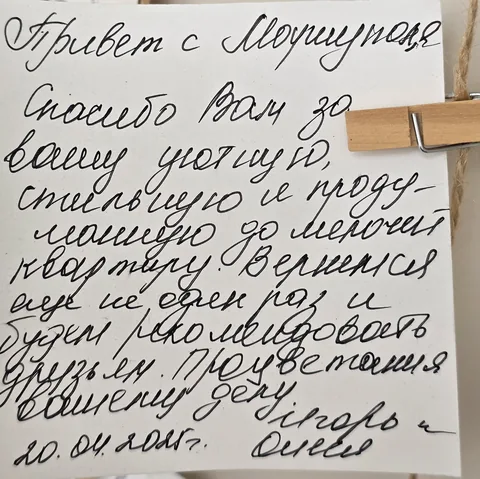 Привет с Мариуполя
Спасибо Вам за
вашу уютную,
стильную и проду-
манную до мелочей
квартиру. Вернемся
еще не один раз и
будем рекомендовать
друзьям. Процветания
вашему делу
Ігорь и
20.04.2025г.